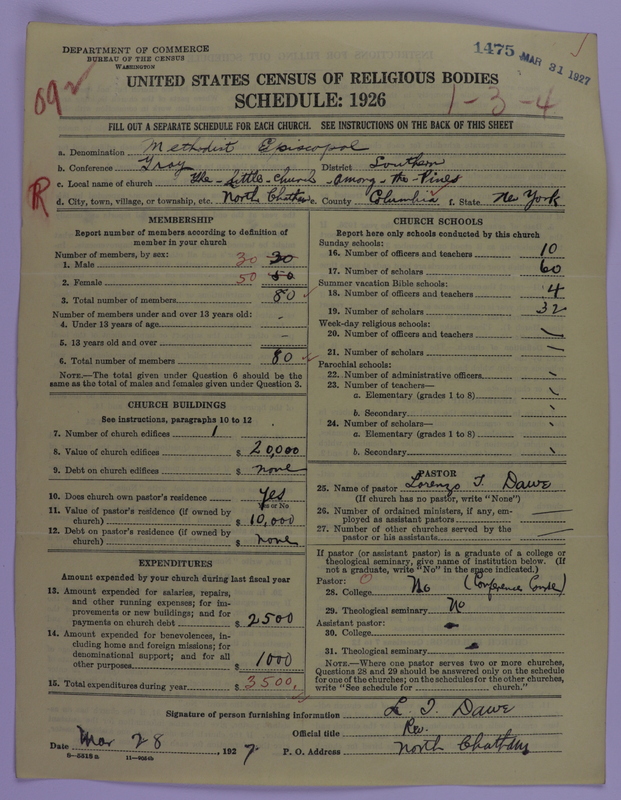 DEPARTMENT OF COMMERCE
BUREAU OF THE CENSUS
WASHINGTON
1475 MAR 31 1927
UNITED STATES CENSUS OF RELIGIOUS BODIES
SCHEDULE: 1926
1-3-4
FILL OUT A SEPARATE SCHEDULE FOR EACH CHURCH. SEE INSTRUCTIONS ON THE BACK OF THIS SHEET
a. Denomination Methodist Episcopal
b. Conference Troy District Southern
c. Local name of church The-Little-Church-Among-the-Pines
d. City, town, village, or township, etc. North Chatham e. County Columbia f. State New York
MEMBERSHIP
Report number of members according to definition of
member in your church
Number of members, by sex:
1. Male 30 30
2. Female 50 50
3. Total number of members 80
Number of members under and over 13 years old:
4. Under 13 years of age -
5. 13 years old and over -
6. Total number of members 80
NOTE.—The total given under Question 6 should be
same as the total of males and females given under Question 3.
CHURCH BUILDINGS
See instructions, paragraphs 10 to 12
7. Number of church edifices 1
8. Value of church edifices $ 20,000
9. Debt on church edifices $ none
10. Does church own pastor's residence Yes
Yes or No
11. Value of pastor's residence (if owned by
church) $ 10,000
12. Debt on pastor's residence (if owned by
church) $ none
EXPENDITURES
Amount expended by your church during last fiscal year
13. Amount expended for salaries, repairs,
and other running expenses; for im-
provements or new buildings; and for
payments on church debt $ 2500
14. Amount expended for benevolences, in-
cluding home and foreign missions; for
denominational support; and for all
other purposes $ 1000
15. Total expenditures during year $ 3500.
CHURCH SCHOOLS
Report here only schools conducted by this church
Sunday schools:
16. Number of officers and teachers 10
17. Number of scholars 60
Summer vacation Bible schools:
18. Number of officers and teachers 4
19. Number of scholars 32
Week-day religious schools:
20. Number of officers and teachers
21. Number of scholars
Parochial schools:
22. Number of administrative officers
23. Number of teachers—
a. Elementary (grades 1 to 8)
b. Secondary
24. Number of scholars—
a. Elementary (grades 1 to 8)
b. Secondary
PASTOR
25. Name of pastor Lorenzo T. Dawe
(If church has no pastor, write "None")
26. Number of ordained ministers, if any, em-
ployed as assistant pastors
27. Number of other churches served by the
pastor or his assistants
If pastor (or assistant pastor) is a graduate of a college or
theological seminary, give name of institution below. (If
not a graduate, write "No" in the space indicated.)
Pastor: 0
28. College No (Conference Course)
29. Theological seminary No
Assistant pastor:
30. College
31. Theological seminary
NOTE.—Where one pastor serves two or more churches,
Questions 28 and 29 should be answered only on the schedule
for one of the churches; on the schedules for the other churches,
write "See schedule for church."
Signature of person furnishing information L. T. Dawe
Official title Rev.
Date Mar 28, 1927 P. O. Address North Chatham